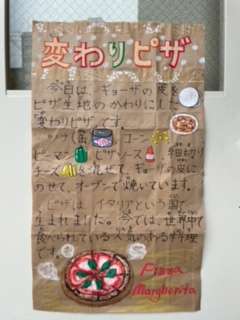 変わりピザ
今日は、ギョーザの皮を
ピザ生地のかわりにした
変わりピザです。
ツナ缶 コーン
ピーマン ピザソース 細切り
チーズ をのせて、ギョーザの皮に
のせて、オーブンで焼いています。
ピザは、イタリアという国で
生まれました。今では、世界中で
食べられている人気のある料理
です。
Pizza
Margherita